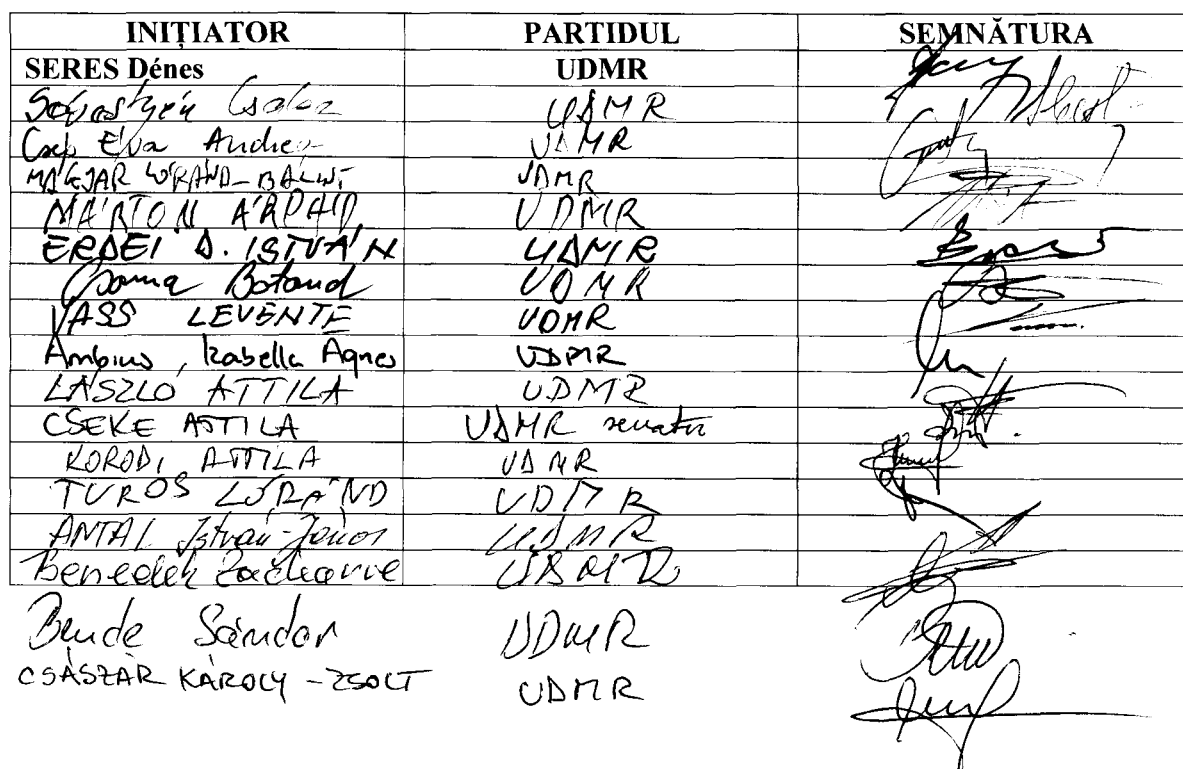 INIȚIATOR PARTIDUL SEMNĂTURA
SERES Dénes UDMR
Sebestyén Csaba UDMR
Csep Éva Andrea UDMR
MAGYAR LÓRÁND-BÁLINT UDMR
MÁRTON ÁRPÁD UDMR
ERDEI D. ISTVÁN UDMR
Csoma Botond UDMR
VASS LEVENTE UDMR
Ambrus Izabella Ágnes UDMR
LÁSZLÓ ATTILA UDMR
CSEKE ATTILA UDMR senator
KORODI ATTILA UDMR
TUROS LÓRÁND UDMR
ANTAL István-János UDMR
Benedek Zacharie UDMR
Bende Sándor UDMR
CSÁSZÁR KÁROLY-ZSOLT UDMR